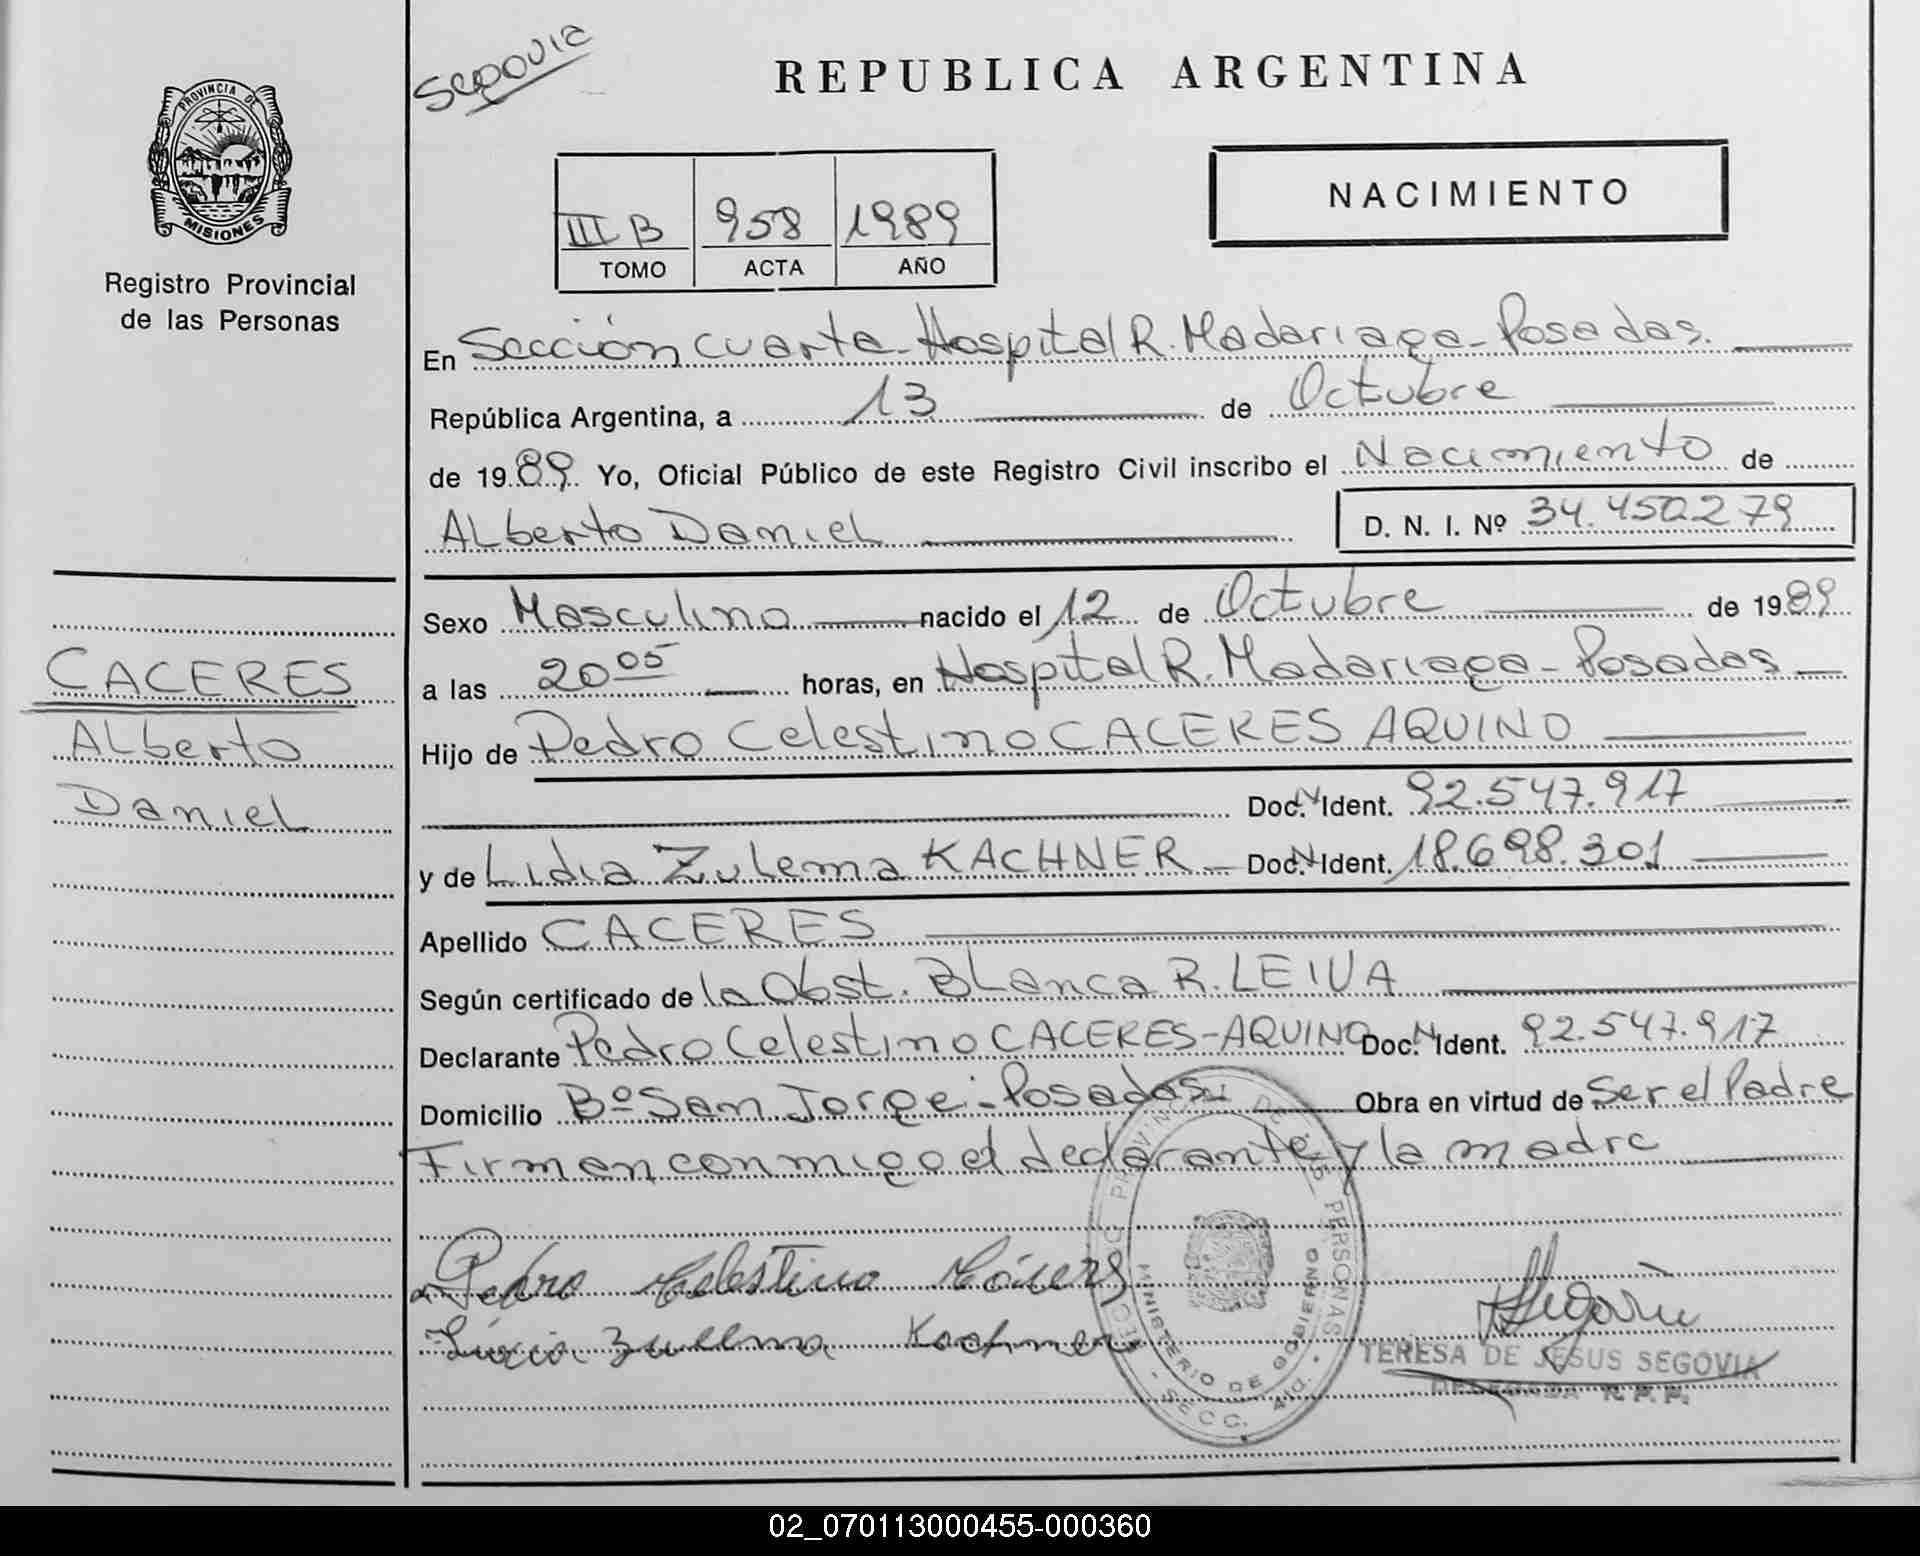 Segovia
REPUBLICA ARGENTINA
PROVINCIA DE
MISIONES
Registro Provincial
de las Personas
III B 958 1989
TOMO ACTA AÑO
NACIMIENTO
En Sección cuarta - Hospital R. Madariaga - Posadas.
República Argentina, a 13 de Octubre
de 1989 Yo, Oficial Público de este Registro Civil inscribo el Nacimiento de
Alberto Daniel D. N. I. Nº 34.450279
Sexo Masculino nacido el 12 de Octubre de 1989
a las 20 05 horas, en Hospital R. Madariaga - Posadas
Hijo de Pedro Celestino CACERES AQUINO
Doc. N Ident. 92.547.917
y de Lidia Zulema KACHNER Doc. N Ident. 18.698.301
Apellido CACERES
Según certificado de la Obst. Blanca R. LEIVA
Declarante Pedro Celestino CACERES - AQUINO Doc. N Ident. 92.547.917
Domicilio Bº San Jorge - Posadas Obra en virtud de Ser el Padre
Firman conmigo el declarante y la madre
CACERES
Alberto
Daniel
Pedro Celestino Cáceres
Zullma Kachner
Segovia
TERESA DE JESUS SEGOVIA
DELEGADA R. P. P.
MINISTERIO DE GOBIERNO
SECC. 4ta.
02_070113000455-000360